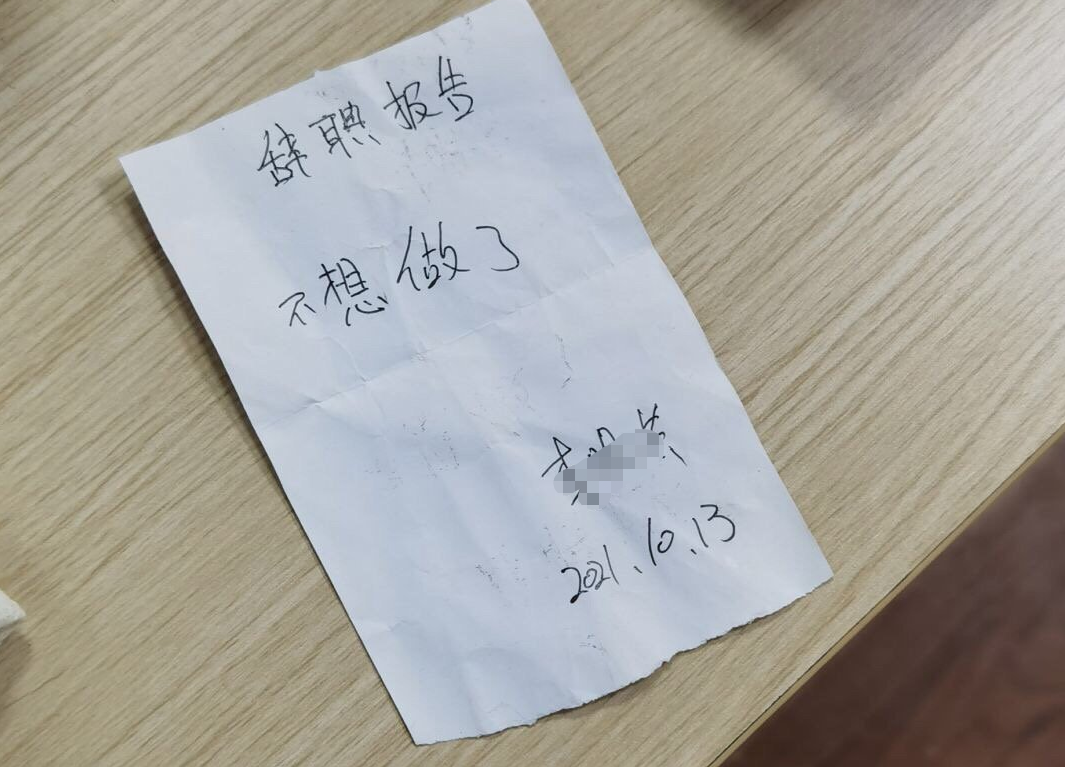 辞聘报告
不想做了
2021.10.13